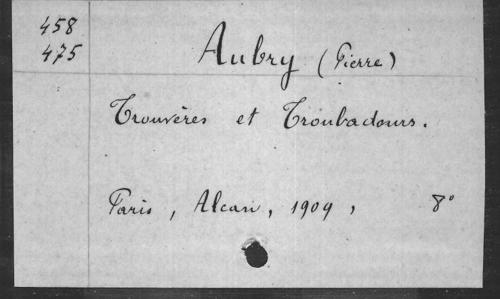 458
475
Aubry (Pierre)
Trouvères et Troubadours.
Paris, Alcan, 1909, 8°